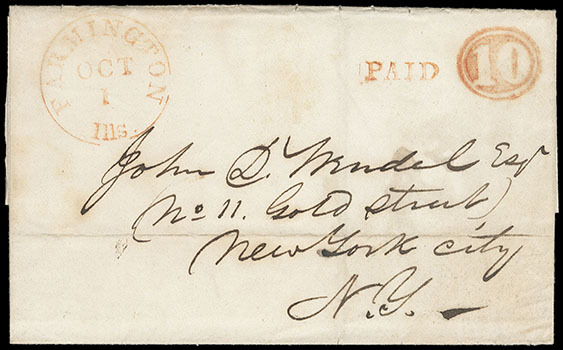 FARMINGTON
OCT
1
Ills.
PAID
10
John D. Wendel Esqr
(No 11. Gold street)
New York city
N.Y.